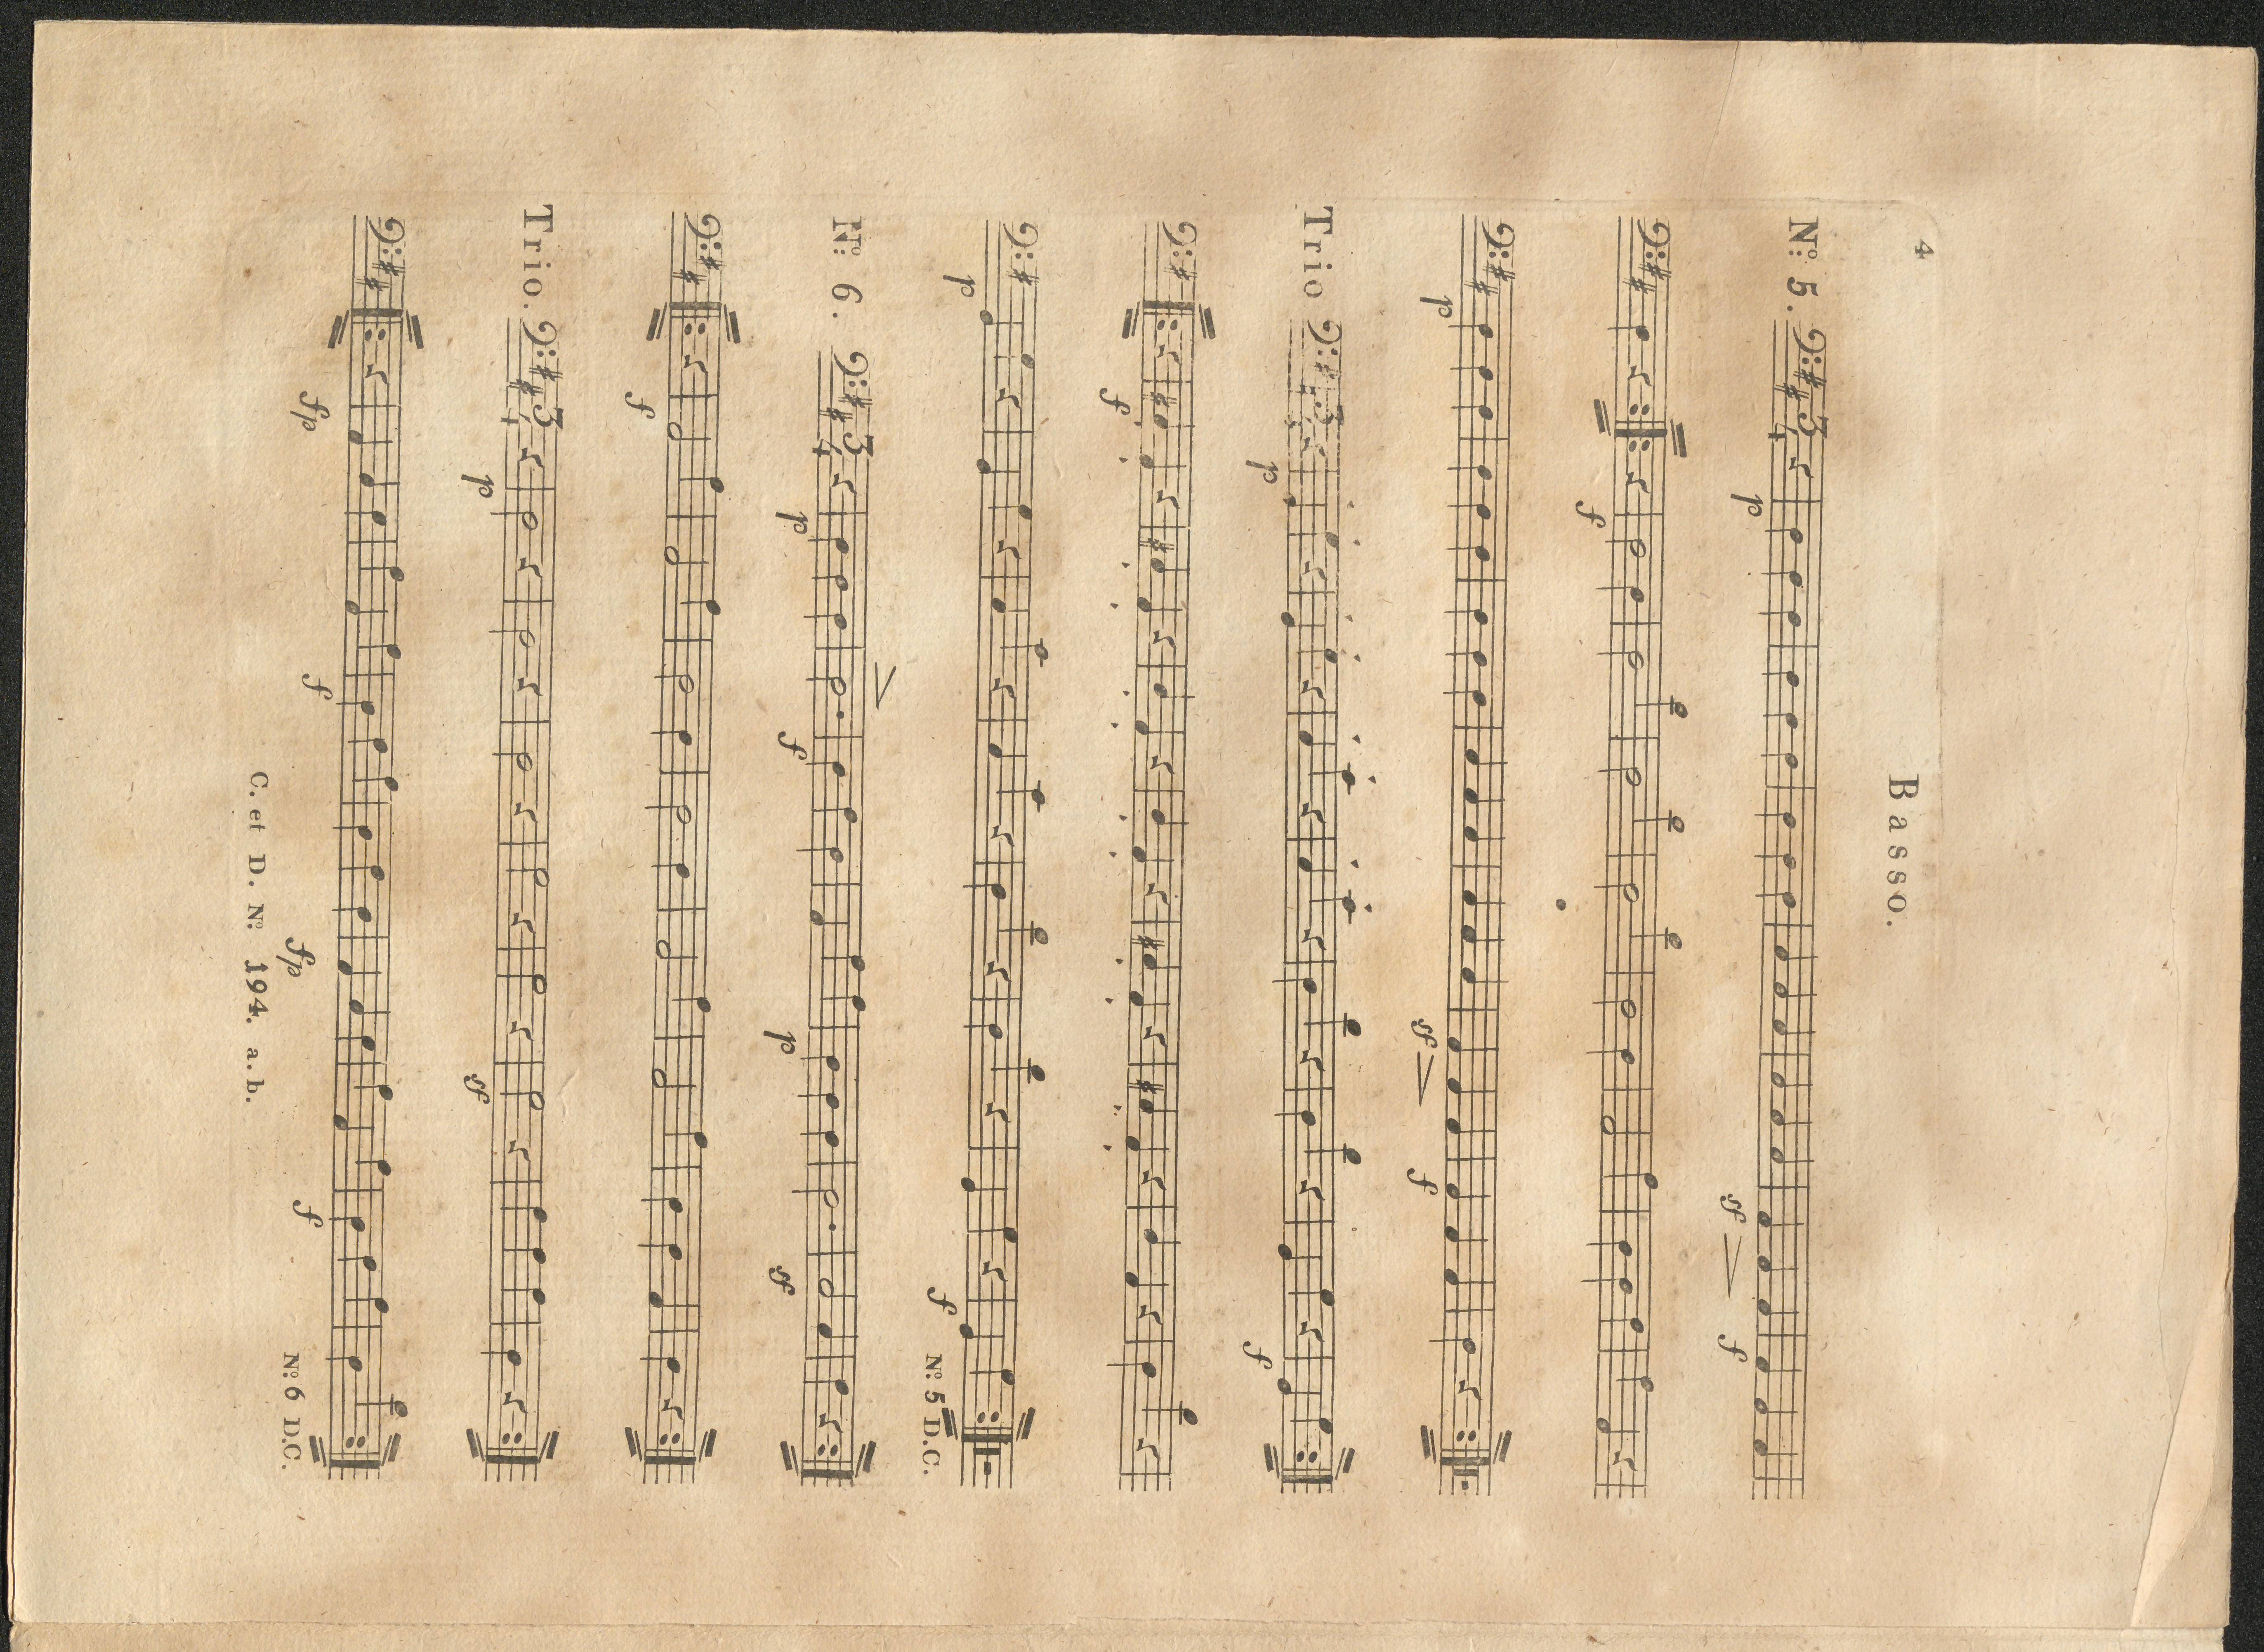 4
Basso.
N.º 5. 3 4 p sf f
f
p sf f
Trio 3 p f
f
p f
N.º 5 D.C.
N.º 6. 3 4 p f p sf
f
Trio. 3 4 p sf
fp f fp f
N.º 6 D.C.
C. et D. N.º 194. a. b.